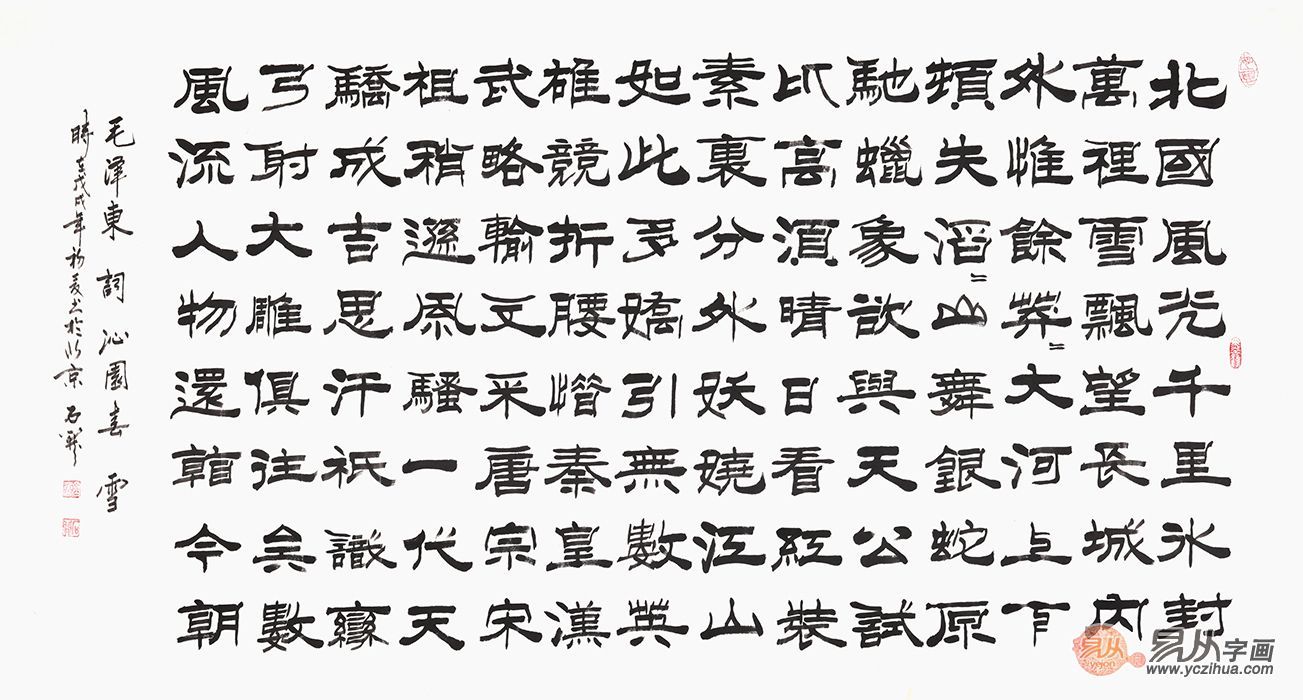 北國風光千里冰封
萬裡雪飄望長城内
外惟餘莽〻大河上下
頓失滔〻山舞銀蛇原
馳蠟象欲與天公試
比高須晴日看紅裝
素裹分外妖嬈江山
如此多嬌引無數英
雄競折腰惜秦皇漢
武略輸文采唐宗宋
祖稍遜風騷一代天
驕成吉思汗祇識彎
弓射大雕俱往矣數
風流人物還看今朝
毛澤東 詞 沁園春 雪
時在戊戌年初夏书於北京 石
易从字画
www.yczihua.com